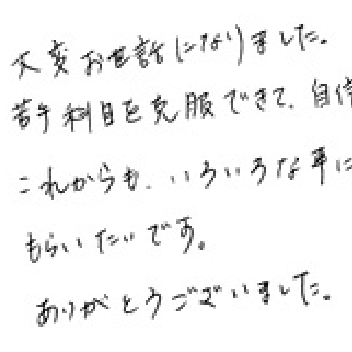 大変お世話になりました。
苦手科目を克服できて、自信
これからも、いろいろな事に
もらいたいです。
ありがとうございました。